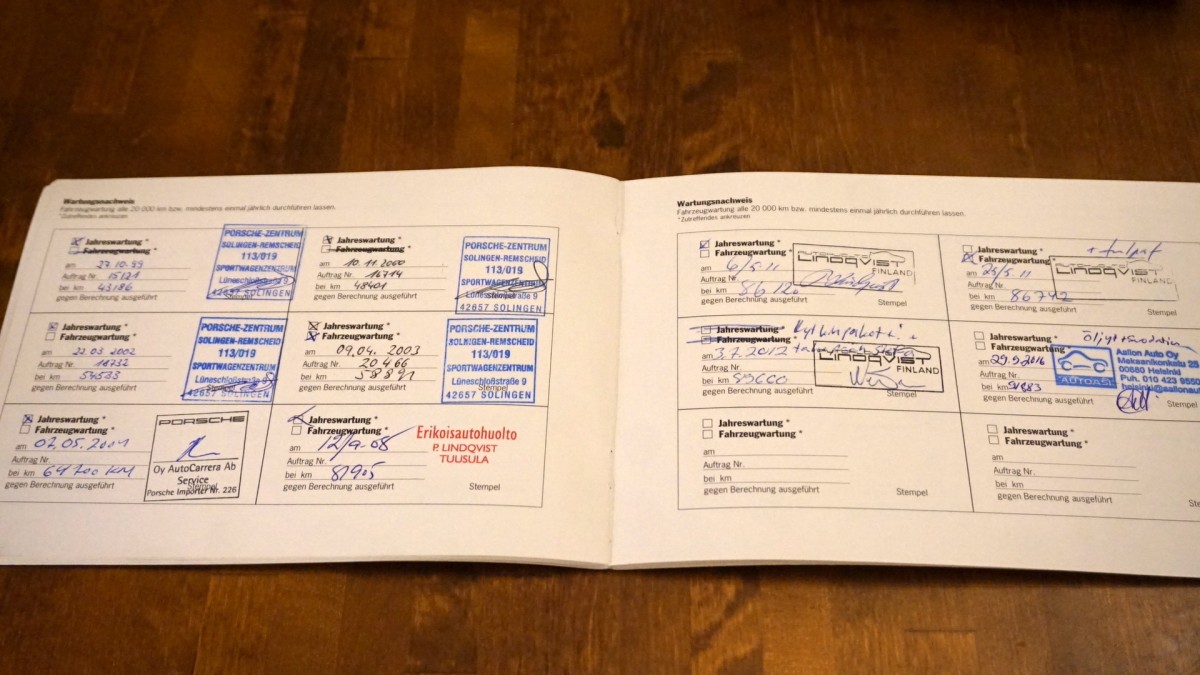 Wartungsnachweis
Fahrzeugwartung alle 20 000 km bzw. mindestens einmal jährlich durchführen lassen.
*Zutreffendes ankreuzen
Jahreswartung *
Fahrzeugwartung *
am 27.10.99
Auftrag Nr. 15121
bei km 43186
gegen Berechnung ausgeführt
PORSCHE-ZENTRUM
SOLINGEN-REMSCHEID
113/019
SPORTWAGENZENTRUM
42657 SOLINGEN
Stempel
Jahreswartung *
Fahrzeugwartung *
am 10.11.2000
Auftrag Nr. 16714
bei km 48401
gegen Berechnung ausgeführt
PORSCHE-ZENTRUM
SOLINGEN-REMSCHEID
113/019
SPORTWAGENZENTRUM
Lüneschloßstraße 9
42657 SOLINGEN
Stempel
Jahreswartung *
Fahrzeugwartung *
am 22.03 2002
Auftrag Nr. 18732
bei km 54533
gegen Berechnung ausgeführt
PORSCHE-ZENTRUM
SOLINGEN-REMSCHEID
113/019
SPORTWAGENZENTRUM
Lüneschloßstraße 9
42657 SOLINGEN
Jahreswartung *
Fahrzeugwartung *
am 09.04. 2003
Auftrag Nr. 20466
bei km
gegen Berechnung ausgeführt
PORSCHE-ZENTRUM
SOLINGEN-REMSCHEID
113/019
SPORTWAGENZENTRUM
Lüneschloßstraße 9
42657 SOLINGEN
Jahreswartung *
Fahrzeugwartung *
am 02.05.
Auftrag Nr.
bei km 64200 KM
gegen Berechnung ausgeführt
PORSCHE
Oy AutoCarrera Ab
Service
Porsche Importer Nr. 226
Stempel
Jahreswartung *
Fahrzeugwartung *
am 12/9.08
Auftrag Nr.
bei km 81905
gegen Berechnung ausgeführt
Erikoisautohuolto
P. LINDQVIST
TUUSULA
Stempel
Wartungsnachweis
Fahrzeugwartung alle 20 000 km bzw. mindestens einmal jährlich durchführen lassen.
*Zutreffendes ankreuzen
Jahreswartung *
Fahrzeugwartung *
am 6/5.11
Auftrag Nr.
bei km 86120
gegen Berechnung ausgeführt
LINDQVIST
FINLAND
Stempel
Jahreswartung *
Fahrzeugwartung *
am 25/5.11
Auftrag Nr.
bei km 86742
gegen Berechnung ausgeführt
LINDQVIST
FINLAND
Stempel
Jahreswartung *
Fahrzeugwartung *
am 3.7.2012
Auftrag Nr.
bei km 89660
gegen Berechnung ausgeführt
LINDQVIST
FINLAND
Stempel
Jahreswartung *
Fahrzeugwartung
am 29.9.2016
Auftrag Nr.
bei km
gegen Berechnung ausgeführt
AUTOASI
Aallon Auto Oy
Mekaanikonkatu
00880 Helsinki
Puh. 010 423
Stempel
Jahreswartung *
Fahrzeugwartung *
am
Auftrag Nr.
bei km
gegen Berechnung ausgeführt
Stempel
Jahreswartung *
Fahrzeugwartung *
am
Auftrag Nr.
bei km
gegen Berechnung ausgeführt